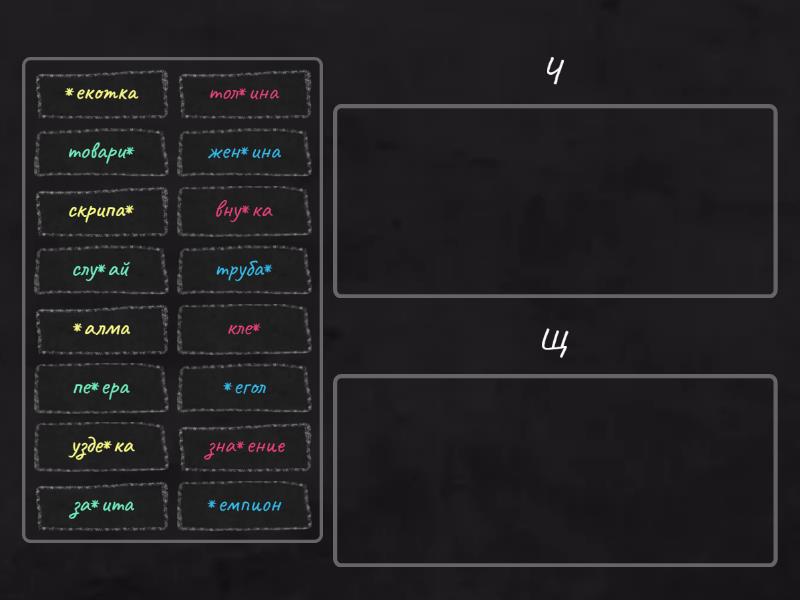 *екотка
тол*ина
товари*
жен*ина
скрипа*
вну*ка
слу*ай
труба*
*алма
кле*
пе*ера
*егол
узде*ка
зна*ение
за*ита
*емпион
Ч
Щ